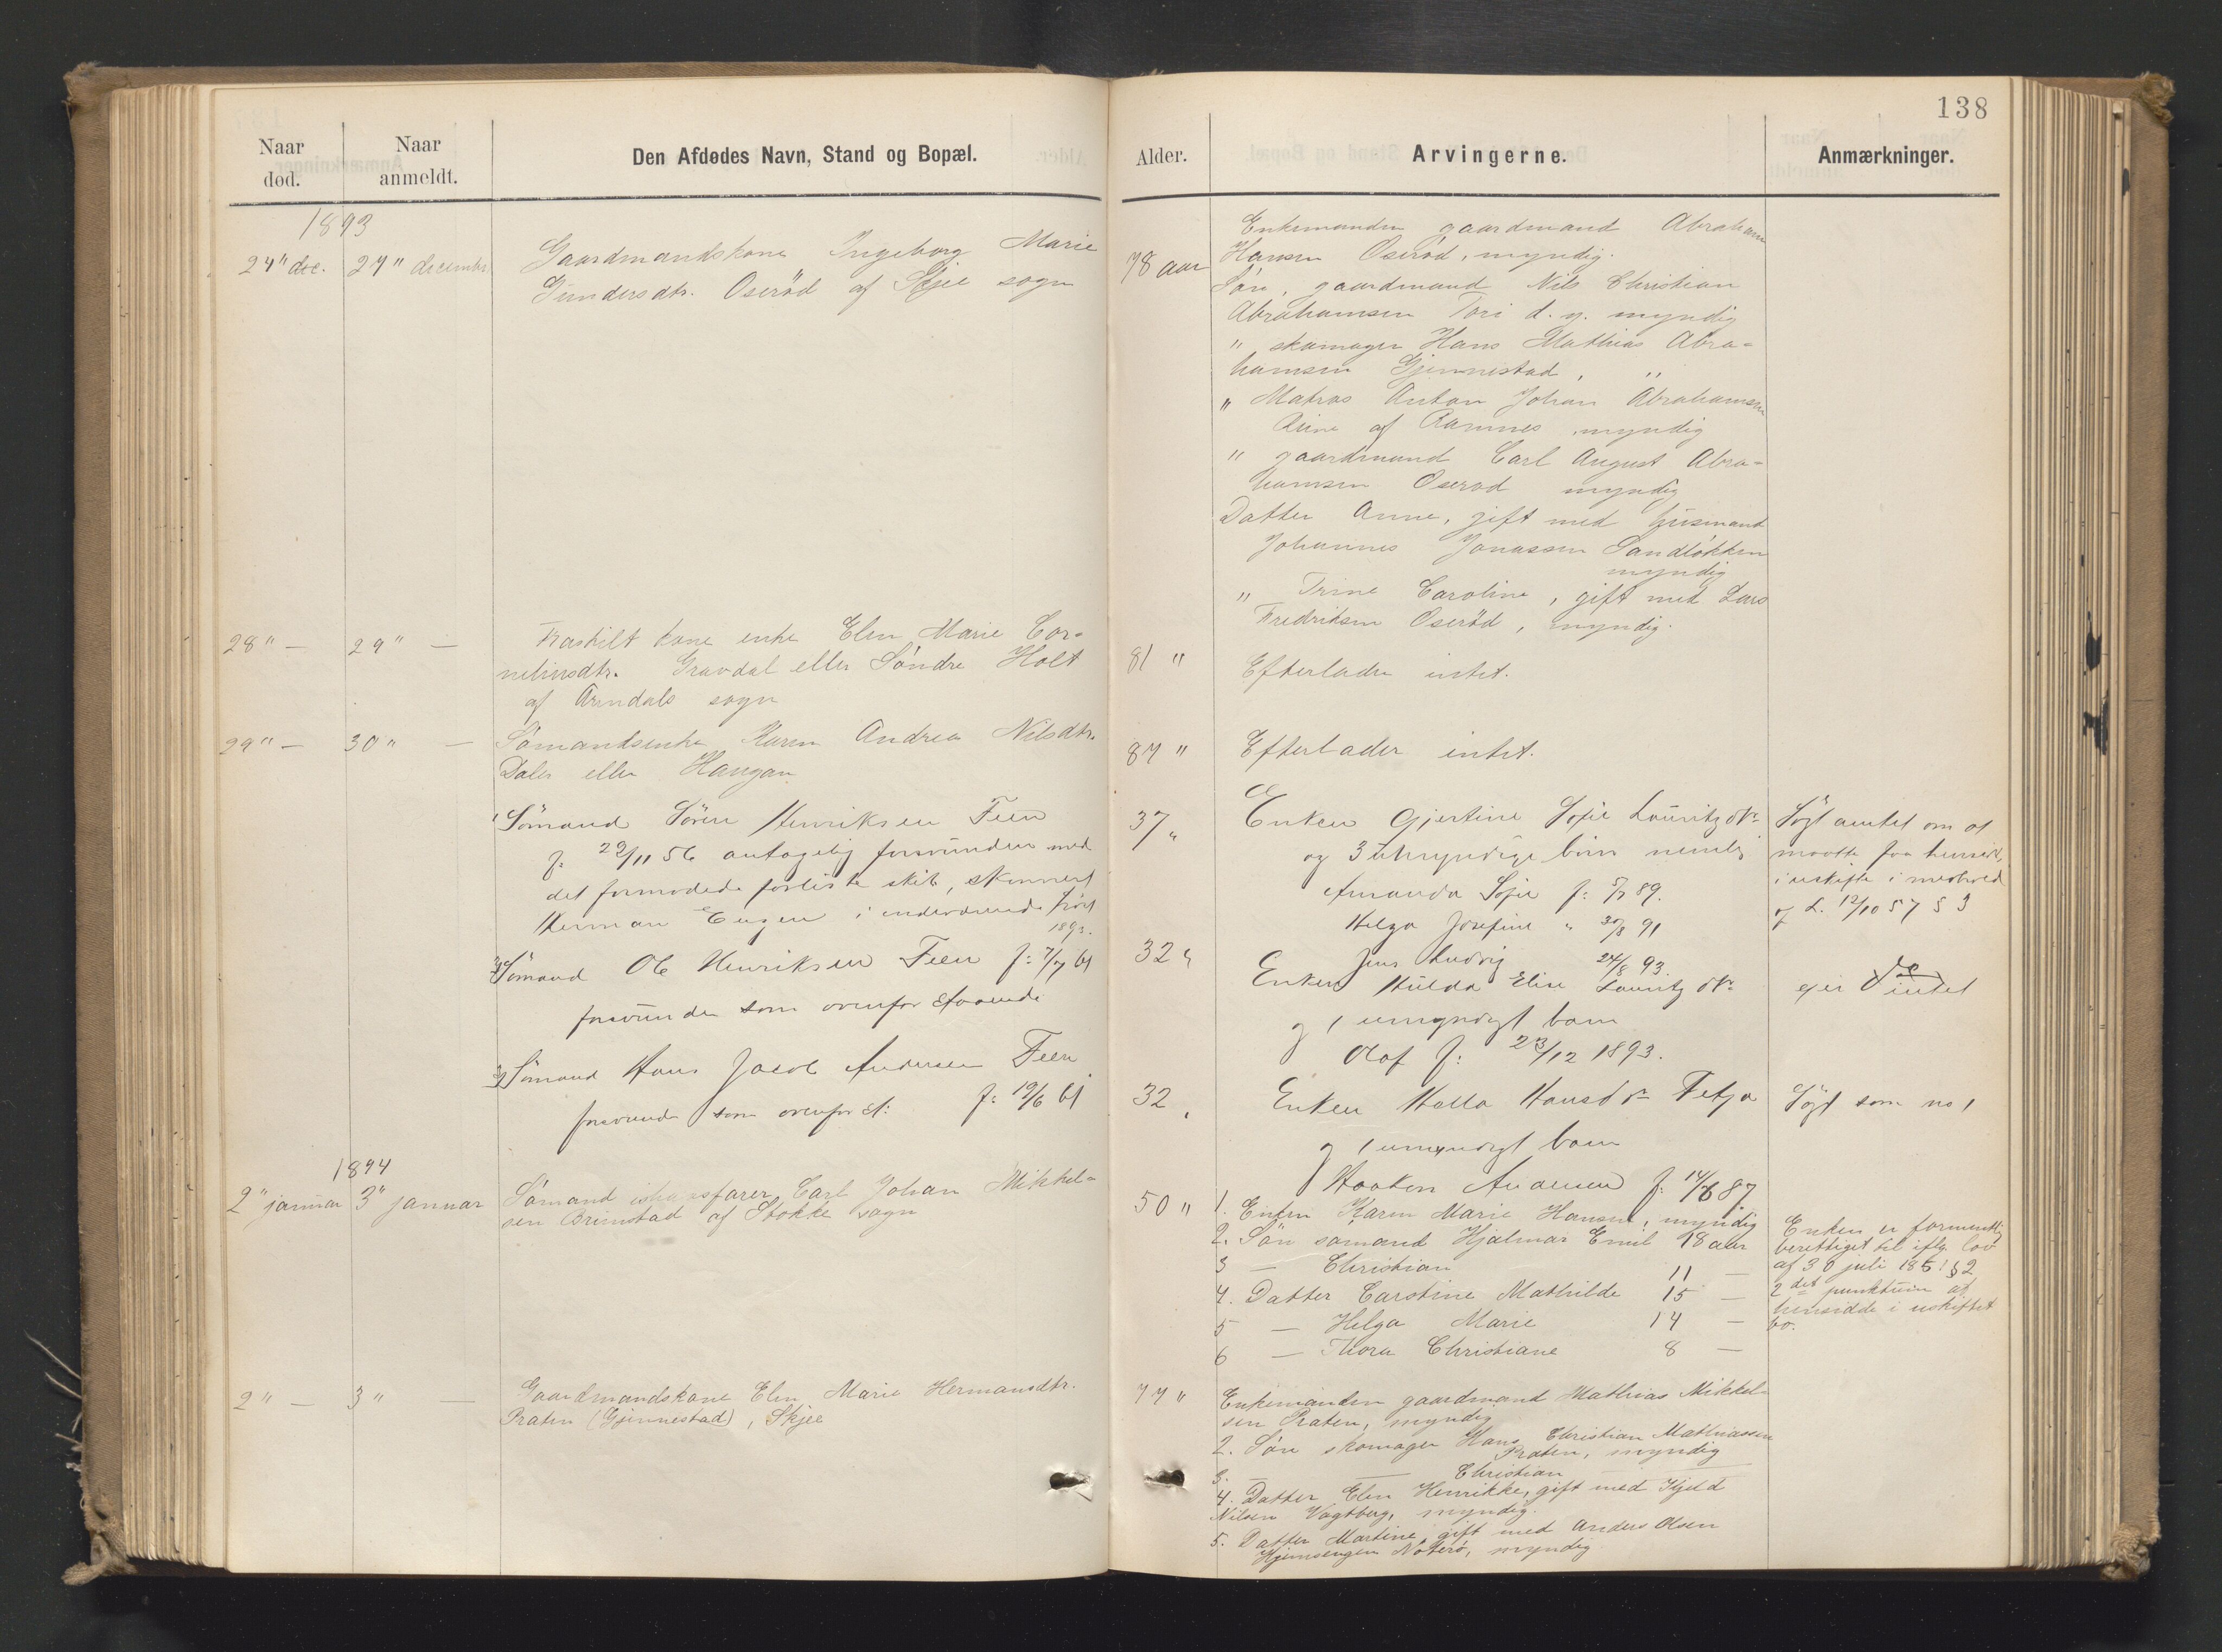 138
Naar død.
Naar anmeldt.
Den Afdødes Navn, Stand og Bopæl.
Alder.
Arvingerne.
Anmærkninger.
1893
24" dec.
27" december
Gaardmandskone Ingeborg Marie
Gundersdtr. Oserød af Skjee sogn
78 aar
Enkemanden gaardmand Abraham
Hansen Oserød, myndig.
Søn, gaardmand Nils Christian
Abrahamsen Tori d. y. myndig
" skomager Hans Mathias Abra-
hamsen Gjennestad, "
" Matros Anton Johan Abrahamsen
af Ramnes, myndig
" gaardmand Carl August Abra-
hamsen Oserød myndig
Datter Anne, gift med husmand
Johannes Jonassen Sandløkken
myndig
" Trine Caroline, gift med Lars
Fredriksen Oserød, myndig.
28" —
29" —
Fraskilt kone enke Elen Marie Cor-
neliusdtr. Gravdal eller Søndre Holt
af Arndals sogn
81 "
Efterlader intet.
29" —
30" —
Sømandsenke Karen Andrea Nilsdtr.
Dales eller Haugan
87 "
Efterlader intet.
1 Sømand Sören Henriksen Feen
f: 29/11 56 antagelig forsvunden med
det formodede forliste skib, skonnert
Herman Eugen i indeværende höst
1893.
37 "
Enken Gjertine Sofie Lauritzdtr
og 3 umyndige börn nemlig
Amanda Sofie f: 5/7 89.
Helga Josefine " 30/8 91
Jens Ludvig 24/8 93.
Sögt amtet om at
maatte faa hensidde
i uskifte i medhold
af L. 12/10 57 § 3
2) Sömand Ole Henriksen Feen f: 7/7 61
forsvunden som ovenfor staaende
32 "
Enken Hulda Elise Lauritzdtr
og 1 umyndigt barn
Olaf f: 23/12 1893.
ejer intet
3) Sömand Hans Jacob Andersen Feen
forsvunden som ovenfor st: f: 19/6 61
32 "
Enken Hansdtr
og 1 umyndigt barn
Haakon Andersen f: 14/6 87
Sögt som no 1
1894
2" januar
3" januar
Sømand ishavsfarer Carl Johan Mikkel-
sen Brimstad af Stokke sogn
50 "
1. Enken Karen Marie Hansen, myndig
2. Søn sømand Hjalmar Emil 18 aar
3 — Christian 11 —
4. Datter Carstine Mathilde 15 —
5 — Helga Marie 14 —
6 — Thora Christiane 8 —
Enken er formentlig
berettiget til iflg. lov
af 30 juli 1851 § 2
2det punktum at
hensidde i uskiftet
bo.
2" —
3" —
Gaardmandskone Elen Marie Hermansdtr.
Præten (Gjennestad), Skjee
77 "
Enkemanden gaardmand Mathias Mikkel-
sen Præten, myndig
2. Søn skomager Hans Christian Mathiassen
Præten, myndig
3. — — Christian —
4. Datter Elen Henrikke, gift med Kjeld
Nilsen Vagtberg, myndig.
5. Datter Martine gift med Anders Olsen
Hjemsengen Nøterø, myndig